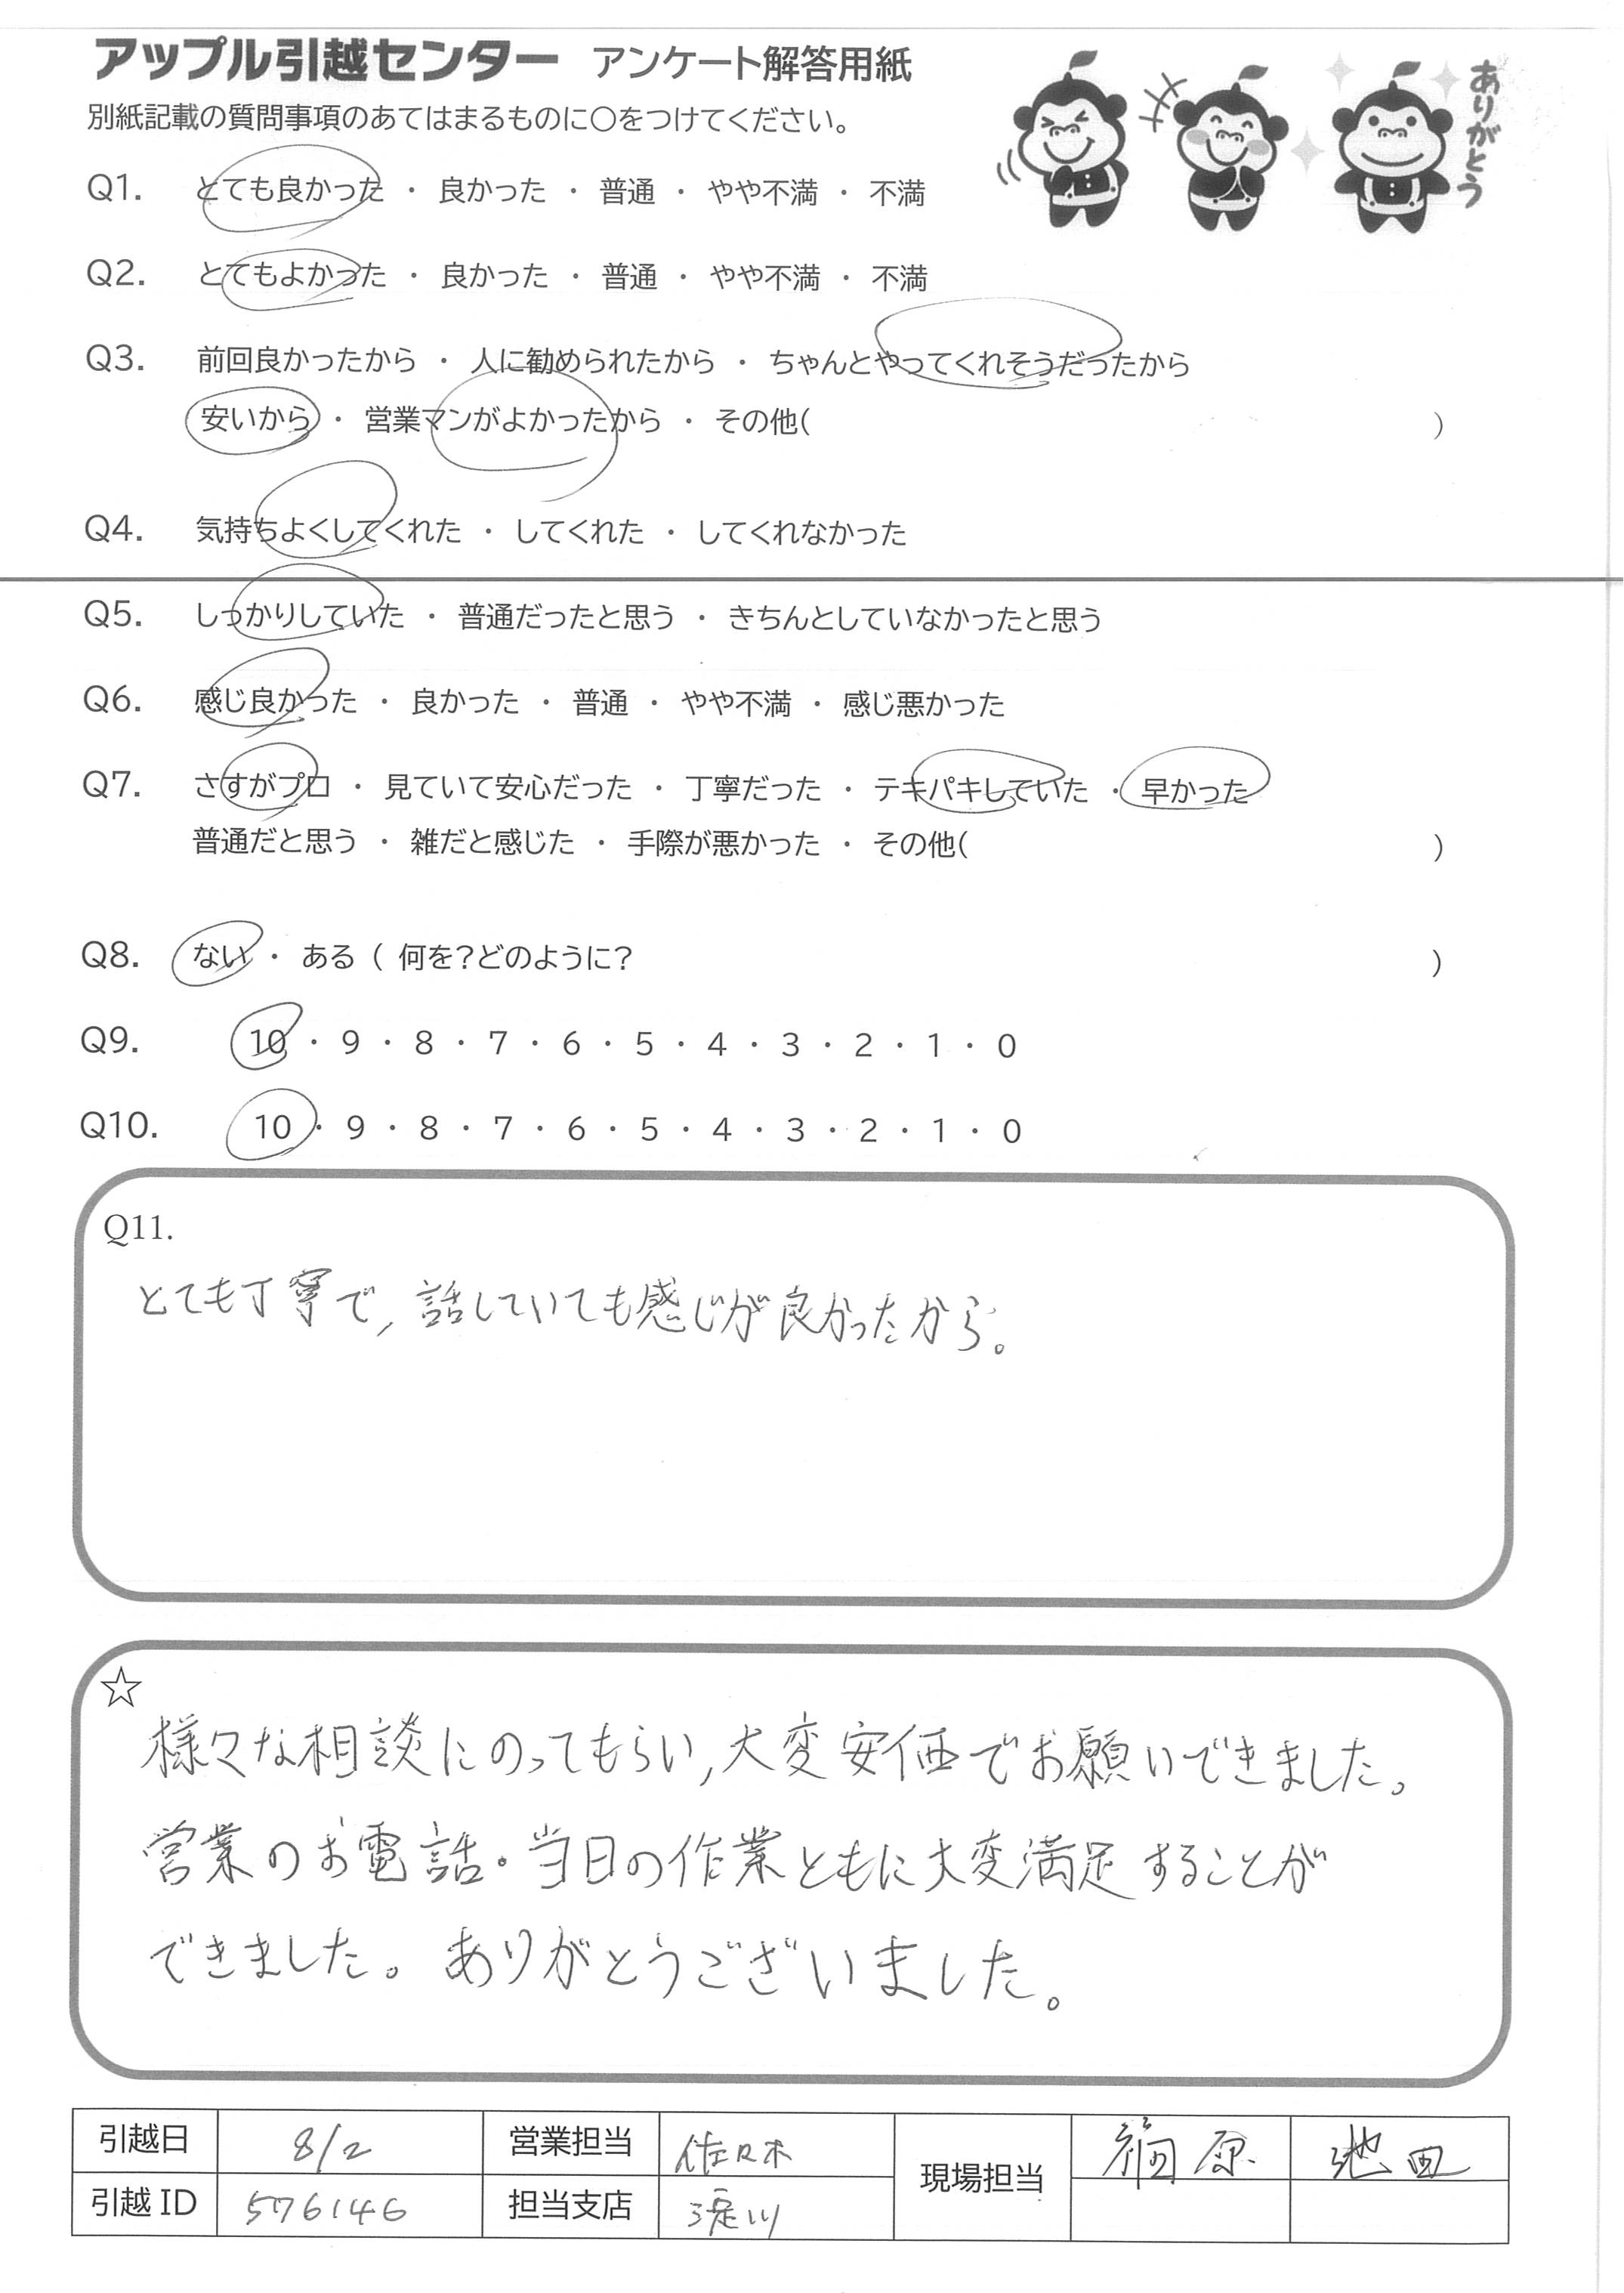 アップル引越センター アンケート解答用紙
別紙記載の質問事項のあてはまるものに〇をつけてください。
ありがとう
Q1. とても良かった ・ 良かった ・ 普通 ・ やや不満 ・ 不満
Q2. とてもよかった ・ 良かった ・ 普通 ・ やや不満 ・ 不満
Q3. 前回良かったから ・ 人に勧められたから ・ ちゃんとやってくれそうだったから
安いから ・ 営業マンがよかったから ・ その他( )
Q4. 気持ちよくしてくれた ・ してくれた ・ してくれなかった
Q5. しっかりしていた ・ 普通だったと思う ・ きちんとしていなかったと思う
Q6. 感じ良かった ・ 良かった ・ 普通 ・ やや不満 ・ 感じ悪かった
Q7. さすがプロ ・ 見ていて安心だった ・ 丁寧だった ・ テキパキしていた ・ 早かった
普通だと思う ・ 雑だと感じた ・ 手際が悪かった ・ その他( )
Q8. ない ・ ある ( 何を?どのように? )
Q9. 10 ・ 9 ・ 8 ・ 7 ・ 6 ・ 5 ・ 4 ・ 3 ・ 2 ・ 1 ・ 0
Q10. 10 ・ 9 ・ 8 ・ 7 ・ 6 ・ 5 ・ 4 ・ 3 ・ 2 ・ 1 ・ 0
Q11.
とても丁寧で, 話していても感じが良かったから。
☆
様々な相談にのってもらい, 大変安価でお願いできました。
営業のお電話・当日の作業ともに大変満足することが
できました。ありがとうございました。
引越日 8/2 営業担当 佐々木 現場担当 福原 池田
引越ID 576146 担当支店 淀川